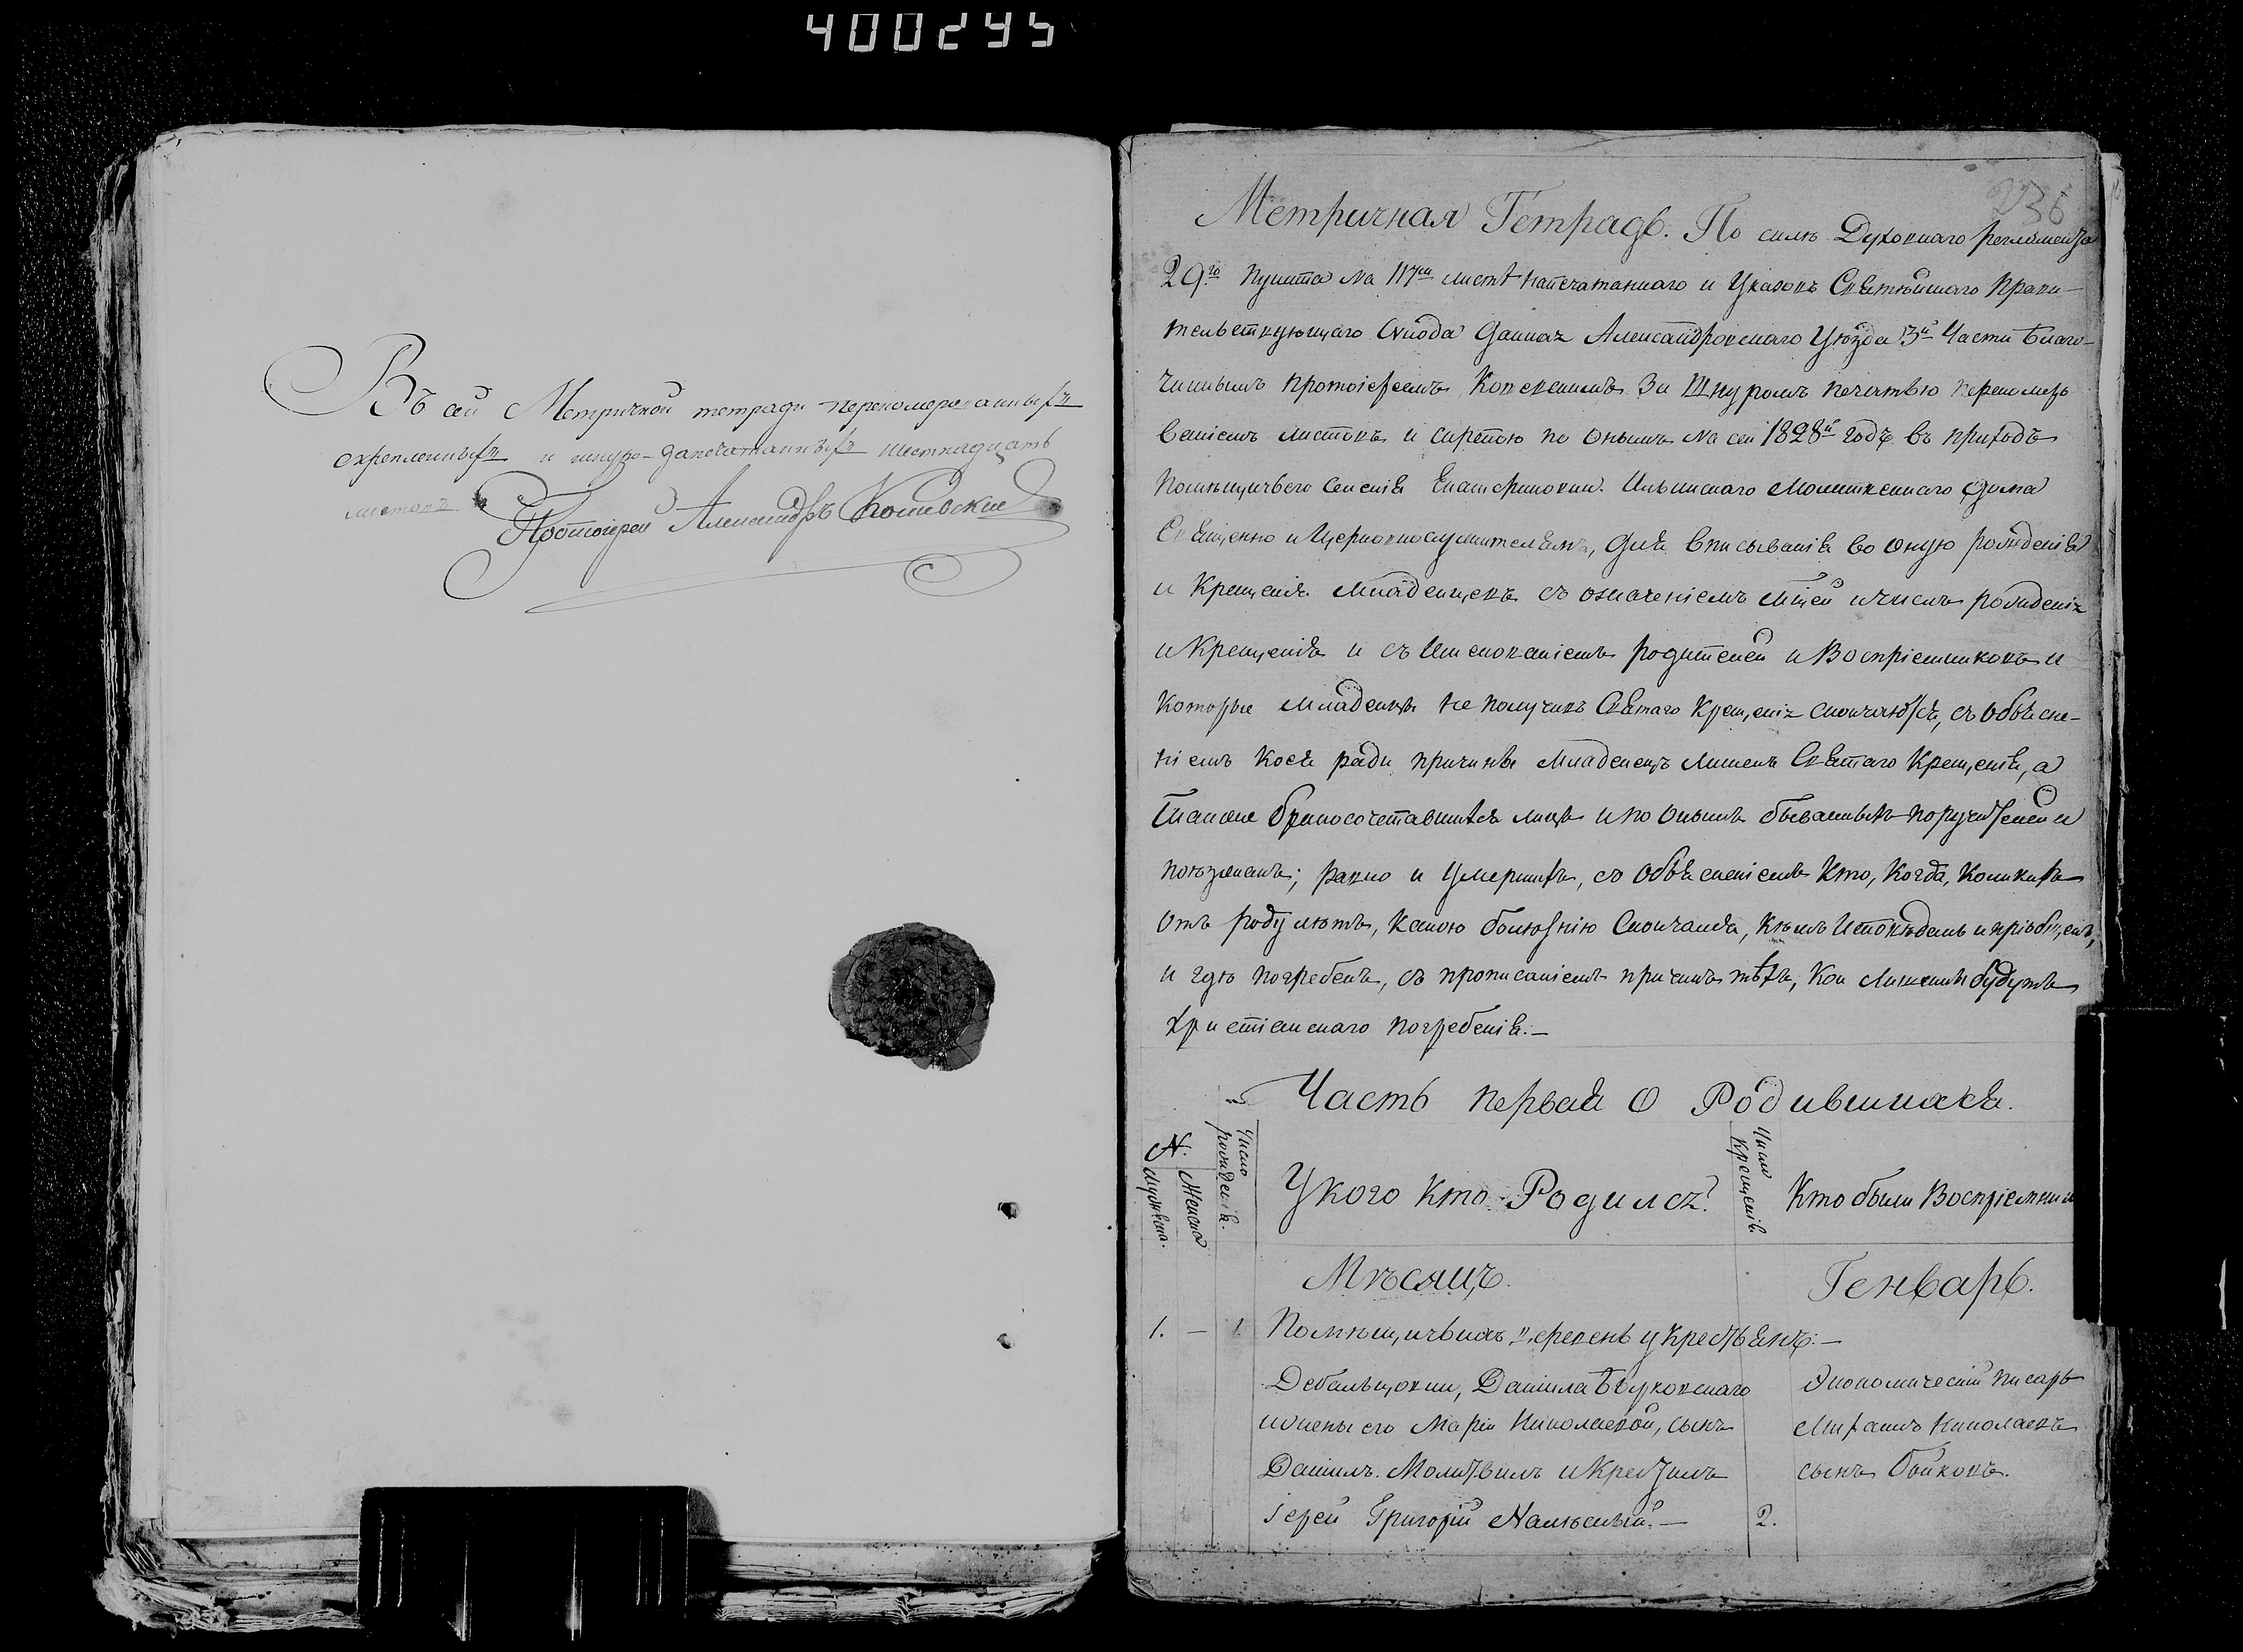 400295
Въ сей Метричной тетради переномерованныхъ
скрепленныхъ и шнуро-запечатанныхъ шестнадцать
листовъ.
Протоіерей Александръ
236
Метричная Тетрадь. По силѣ Духовнаго регламента
29го пункта на 117м листѣ напечатаннаго и Указовъ Святѣйшаго Прави-
тельствующаго Синода Данная Александровскаго Уѣзда 3й Части Благо-
чиннымъ протоіереемъ за Шнуромъ печатью переномеро
ваніемъ листовъ и скрепою по онымъ на сей 1828й годъ въ приходъ
помѣщичьего селенія Екатериновки. Ильинскаго Молитвеннаго дома
Священно и Церковнослужителямъ, для вписыванія во оную рожденія
и Крещенія младенцевъ съ означеніемъ мцей и числъ рожденія
и Крещенія и съ Именованіемъ родителей и Воспріемниковъ и
которые младенцы не получивъ Святаго Крещенія скончаются, съ объясне-
ніемъ коея ради причины младенецъ лишенъ Святаго Крещенія, а
также бракосочетавшіяся лица и по онымъ бывшихъ поручителей и
поѣзжанъ; равно и умершихъ, съ объясненіемъ Кто, Когда, Коликихъ
отъ роду лѣтъ, какою болезнію Скончался, кѣмъ Исповѣданъ и пріобщенъ,
и гдѣ погребенъ, съ прописаніемъ причинъ тѣхъ, кои лишены будутъ
христіанскаго погребенія.—
Часть первая о Родившихся.
N.
Мужеска.
Женска
Число рожденія.
У кого кто Родился?
Число Крещенія
Кто были Воспріемники
Мѣсяцъ.
Генварь.
1. — 1. Помѣщичьихъ деревень у Крестьянъ:—
Дебальцовки, Данила
и жены его Маріи Николаевой, сынъ
Данилъ. Молитвилъ и Крестилъ
Іерей Григорій — 2.
Экономическій писарь
Николаевъ
сынъ Бойковъ.